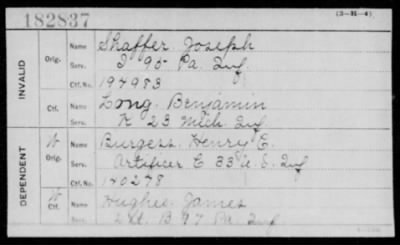 182837
(3-31-4)
INVALID
Orig.
Name Shaffer Joseph
Serv. I 95 Pa. Inf.
Ctf. No. 194983
Ctf.
Name Long Benjamin
Serv. K 23 Mich. Inf.
DEPENDENT
W
Orig.
Name Burgess Henry E.
Serv. Artificer C 33 U.S. Inf
Ctf. No. 140278
W
Ctf.
Name Hughes James
Serv. Lt. B 97 Pa. Inf